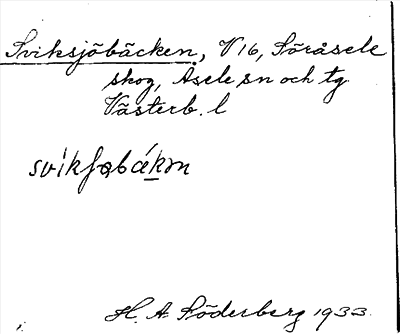 Sviksjöbäcken, V16, Söråsele
skog, Åsele sn och tg
Västerb. l
H. A. Söderberg 1933.